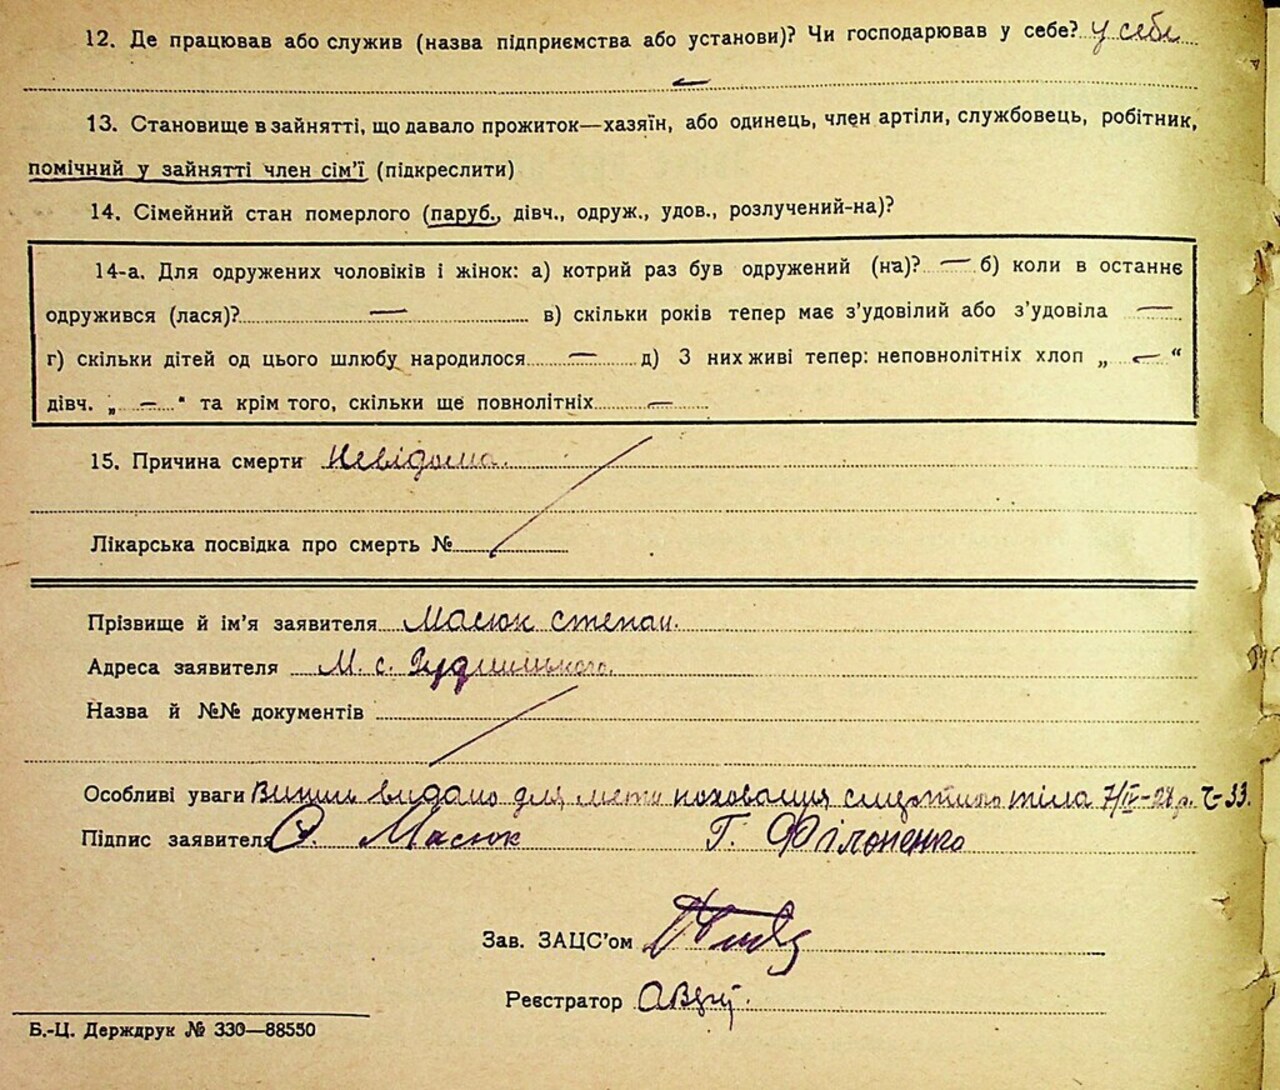 12. Де працював або служив (назва підприємства або установи)? Чи господарював у себе? у себе
—
13. Становище в зайнятті, що давало прожиток—хазяїн, або одинець, член артіли, службовець, робітник,
помічний у зайнятті член сім’ї (підкреслити)
14. Сімейний стан померлого (паруб., дівч., одруж., удов., розлучений-на)?
14-а. Для одружених чоловіків і жінок: а) котрий раз був одружений (на)? — б) коли в останнє
одружився (лася)? — в) скільки років тепер має з’удовілий або з’удовіла —
г) скільки дітей од цього шлюбу народилося — д) З них живі тепер: неповнолітніх хлоп „ — “
дівч. „ — “ та крім того, скільки ще повнолітніх —
15. Причина смерти Невідома.
Лікарська посвідка про смерть №
Прізвище й ім’я заявителя Масюк Степан.
Адреса заявителя М. с.
Назва й №№ документів
Особливі уваги видано для похования тіла 7/IV-28 р. Ч-33.
Підпис заявителя Масюк Г. Філоненко
Зав. ЗАЦС’ом
Реєстратор
Б.-Ц. Держдрук № 330—88550